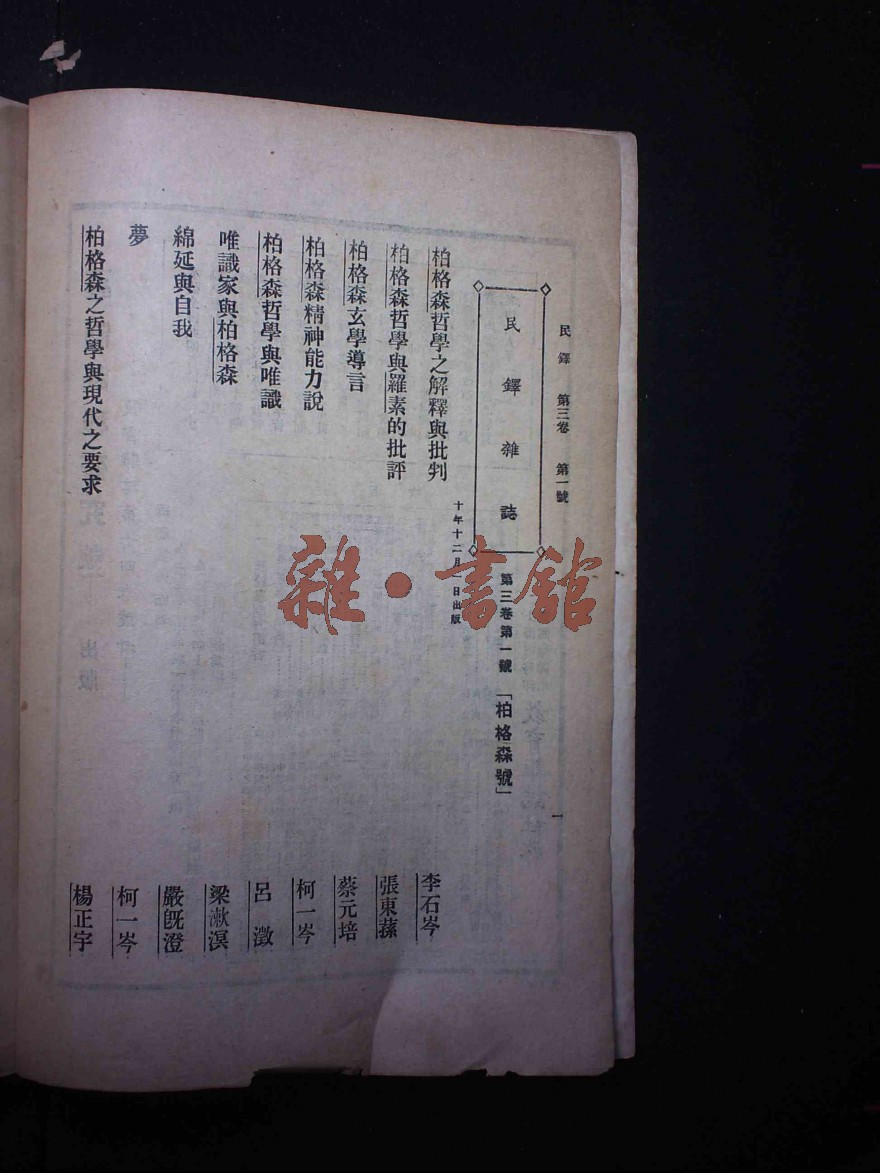 民鐸 第三卷 第一號
一
民鐸雜誌
第三卷第一號「柏格森號」
十年十二月一日出版
柏格森哲學之解釋與批判 李石岑
柏格森哲學與羅素的批評 張東蓀
柏格森玄學導言 蔡元培
柏格森精神能力說 柯一岑
柏格森哲學與唯識 呂澂
唯識家與柏格森 梁漱溟
綿延與自我 嚴旣澄
夢 柯一岑
柏格森之哲學與現代之要求 楊正宇
雜·書館